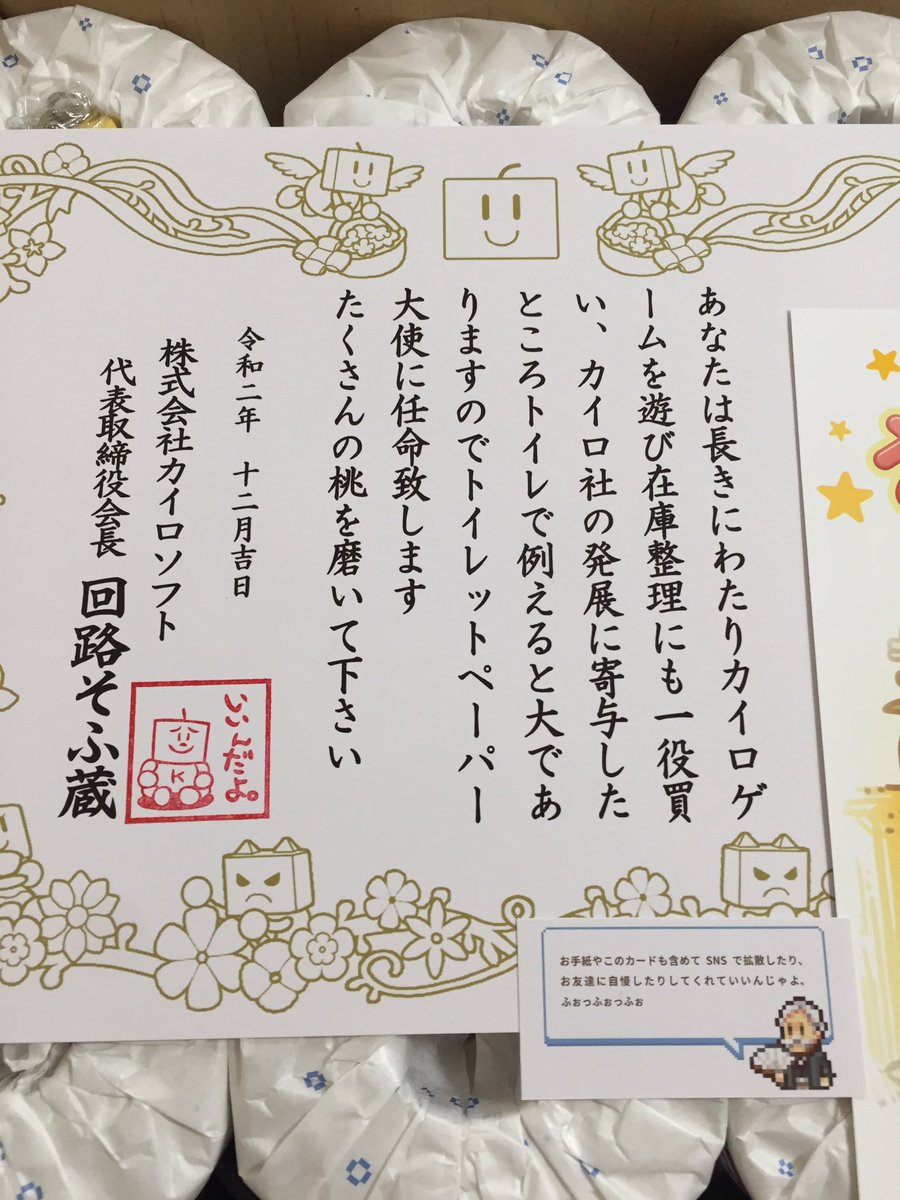 あなたは長きにわたりカイロゲ
ームを遊び在庫整理にも一役買
い、カイロ社の発展に寄与した
ところトイレで例えると大であ
りますのでトイレットペーパー
大使に任命致します
たくさんの桃を磨いて下さい
令和二年 十二月吉日
株式会社カイロソフト
代表取締役会長 回路そふ蔵
いいんだよ。
K
お手紙やこのカードも含めて SNS で拡散したり、
お友達に自慢したりしてくれていいんじゃよ、
ふぉっふぉっふぉ